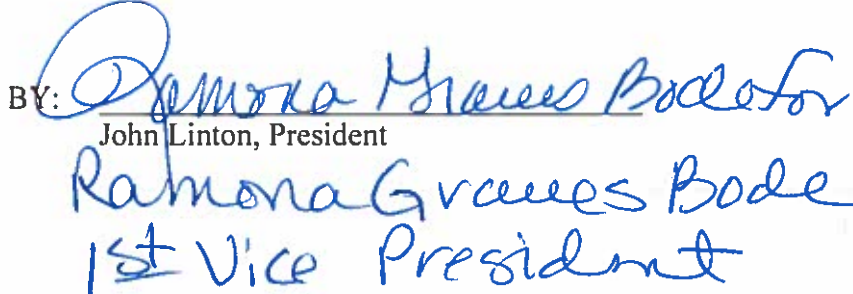 BY: Ramona Graves Bode for
John Linton, President
Ramona Graves Bode
1st Vice President